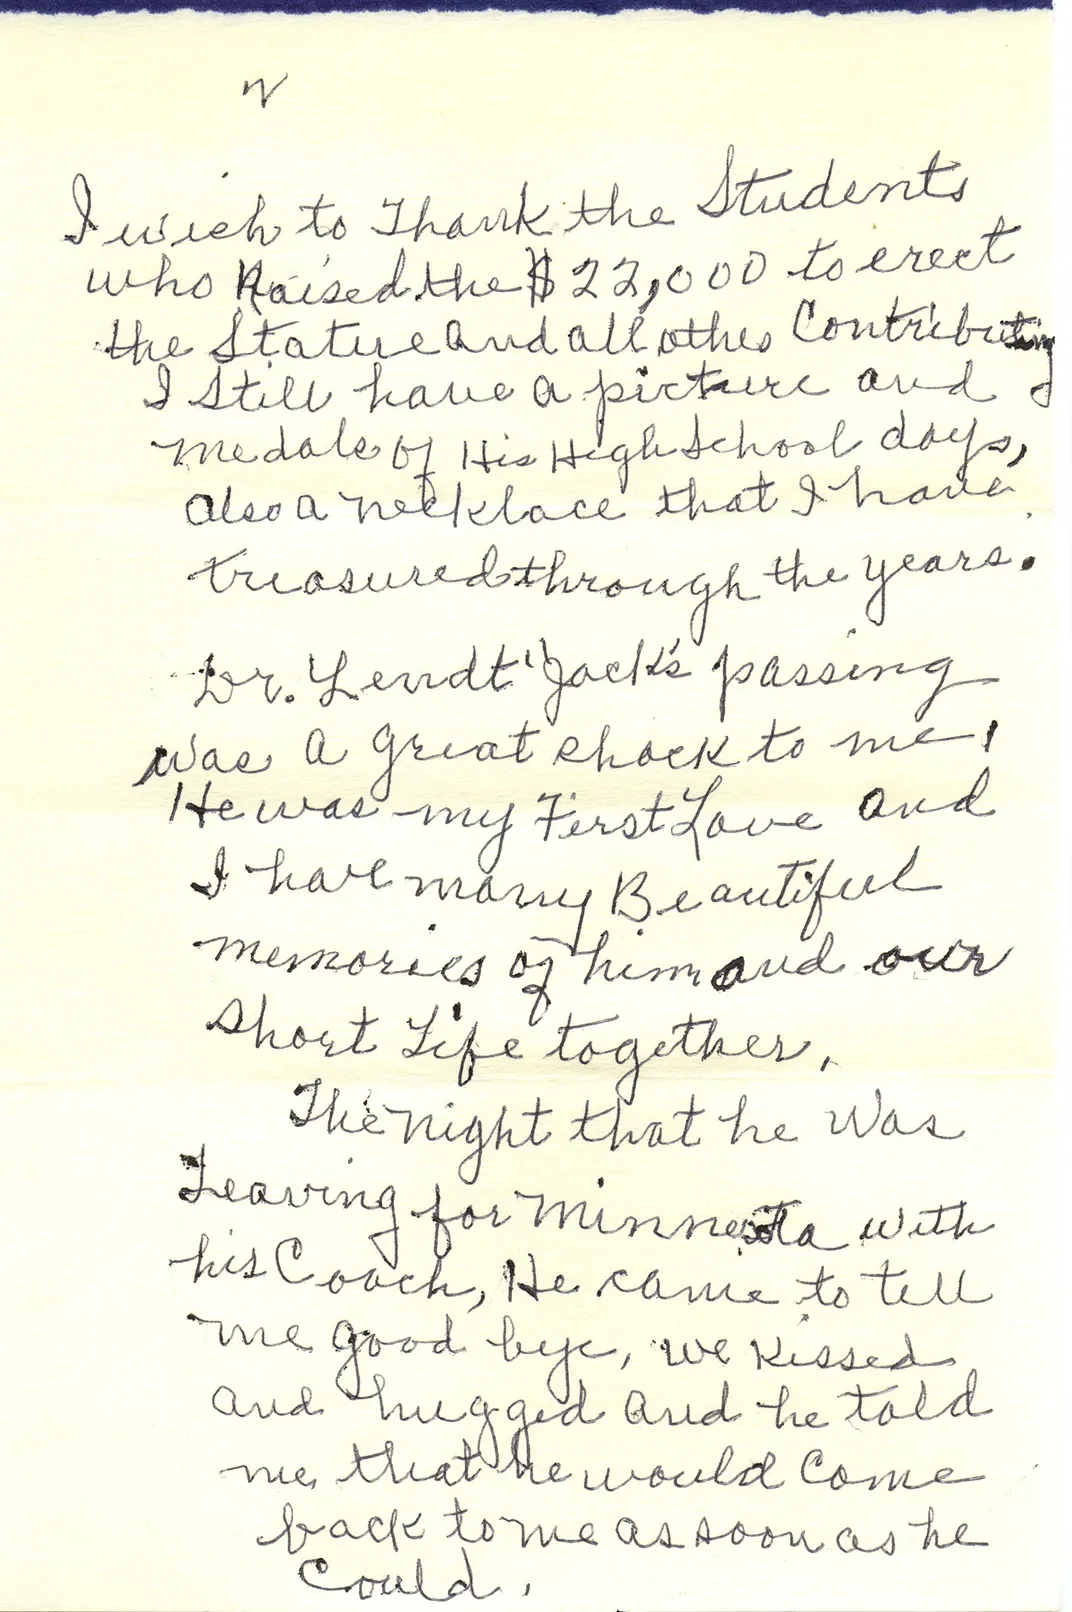 2
I wish to Thank the Students
who Raised the $22,000 to erect
the Stature and all othes Contributing
I Still have a picture and
medals of His High School days,
also a necklace that I have
treasured through the years.
Dr. Lendt "Jack's passing
was a great shock to me,
He was my First Love and
I have many Beautiful
memories of him and our
short Life together.
The night that he Was
Leaving for Minnesota with
his Coach, He came to tell
me good bye, we kissed
and hugged and he told
me, that he would Come
back to me as soon as he
Could.